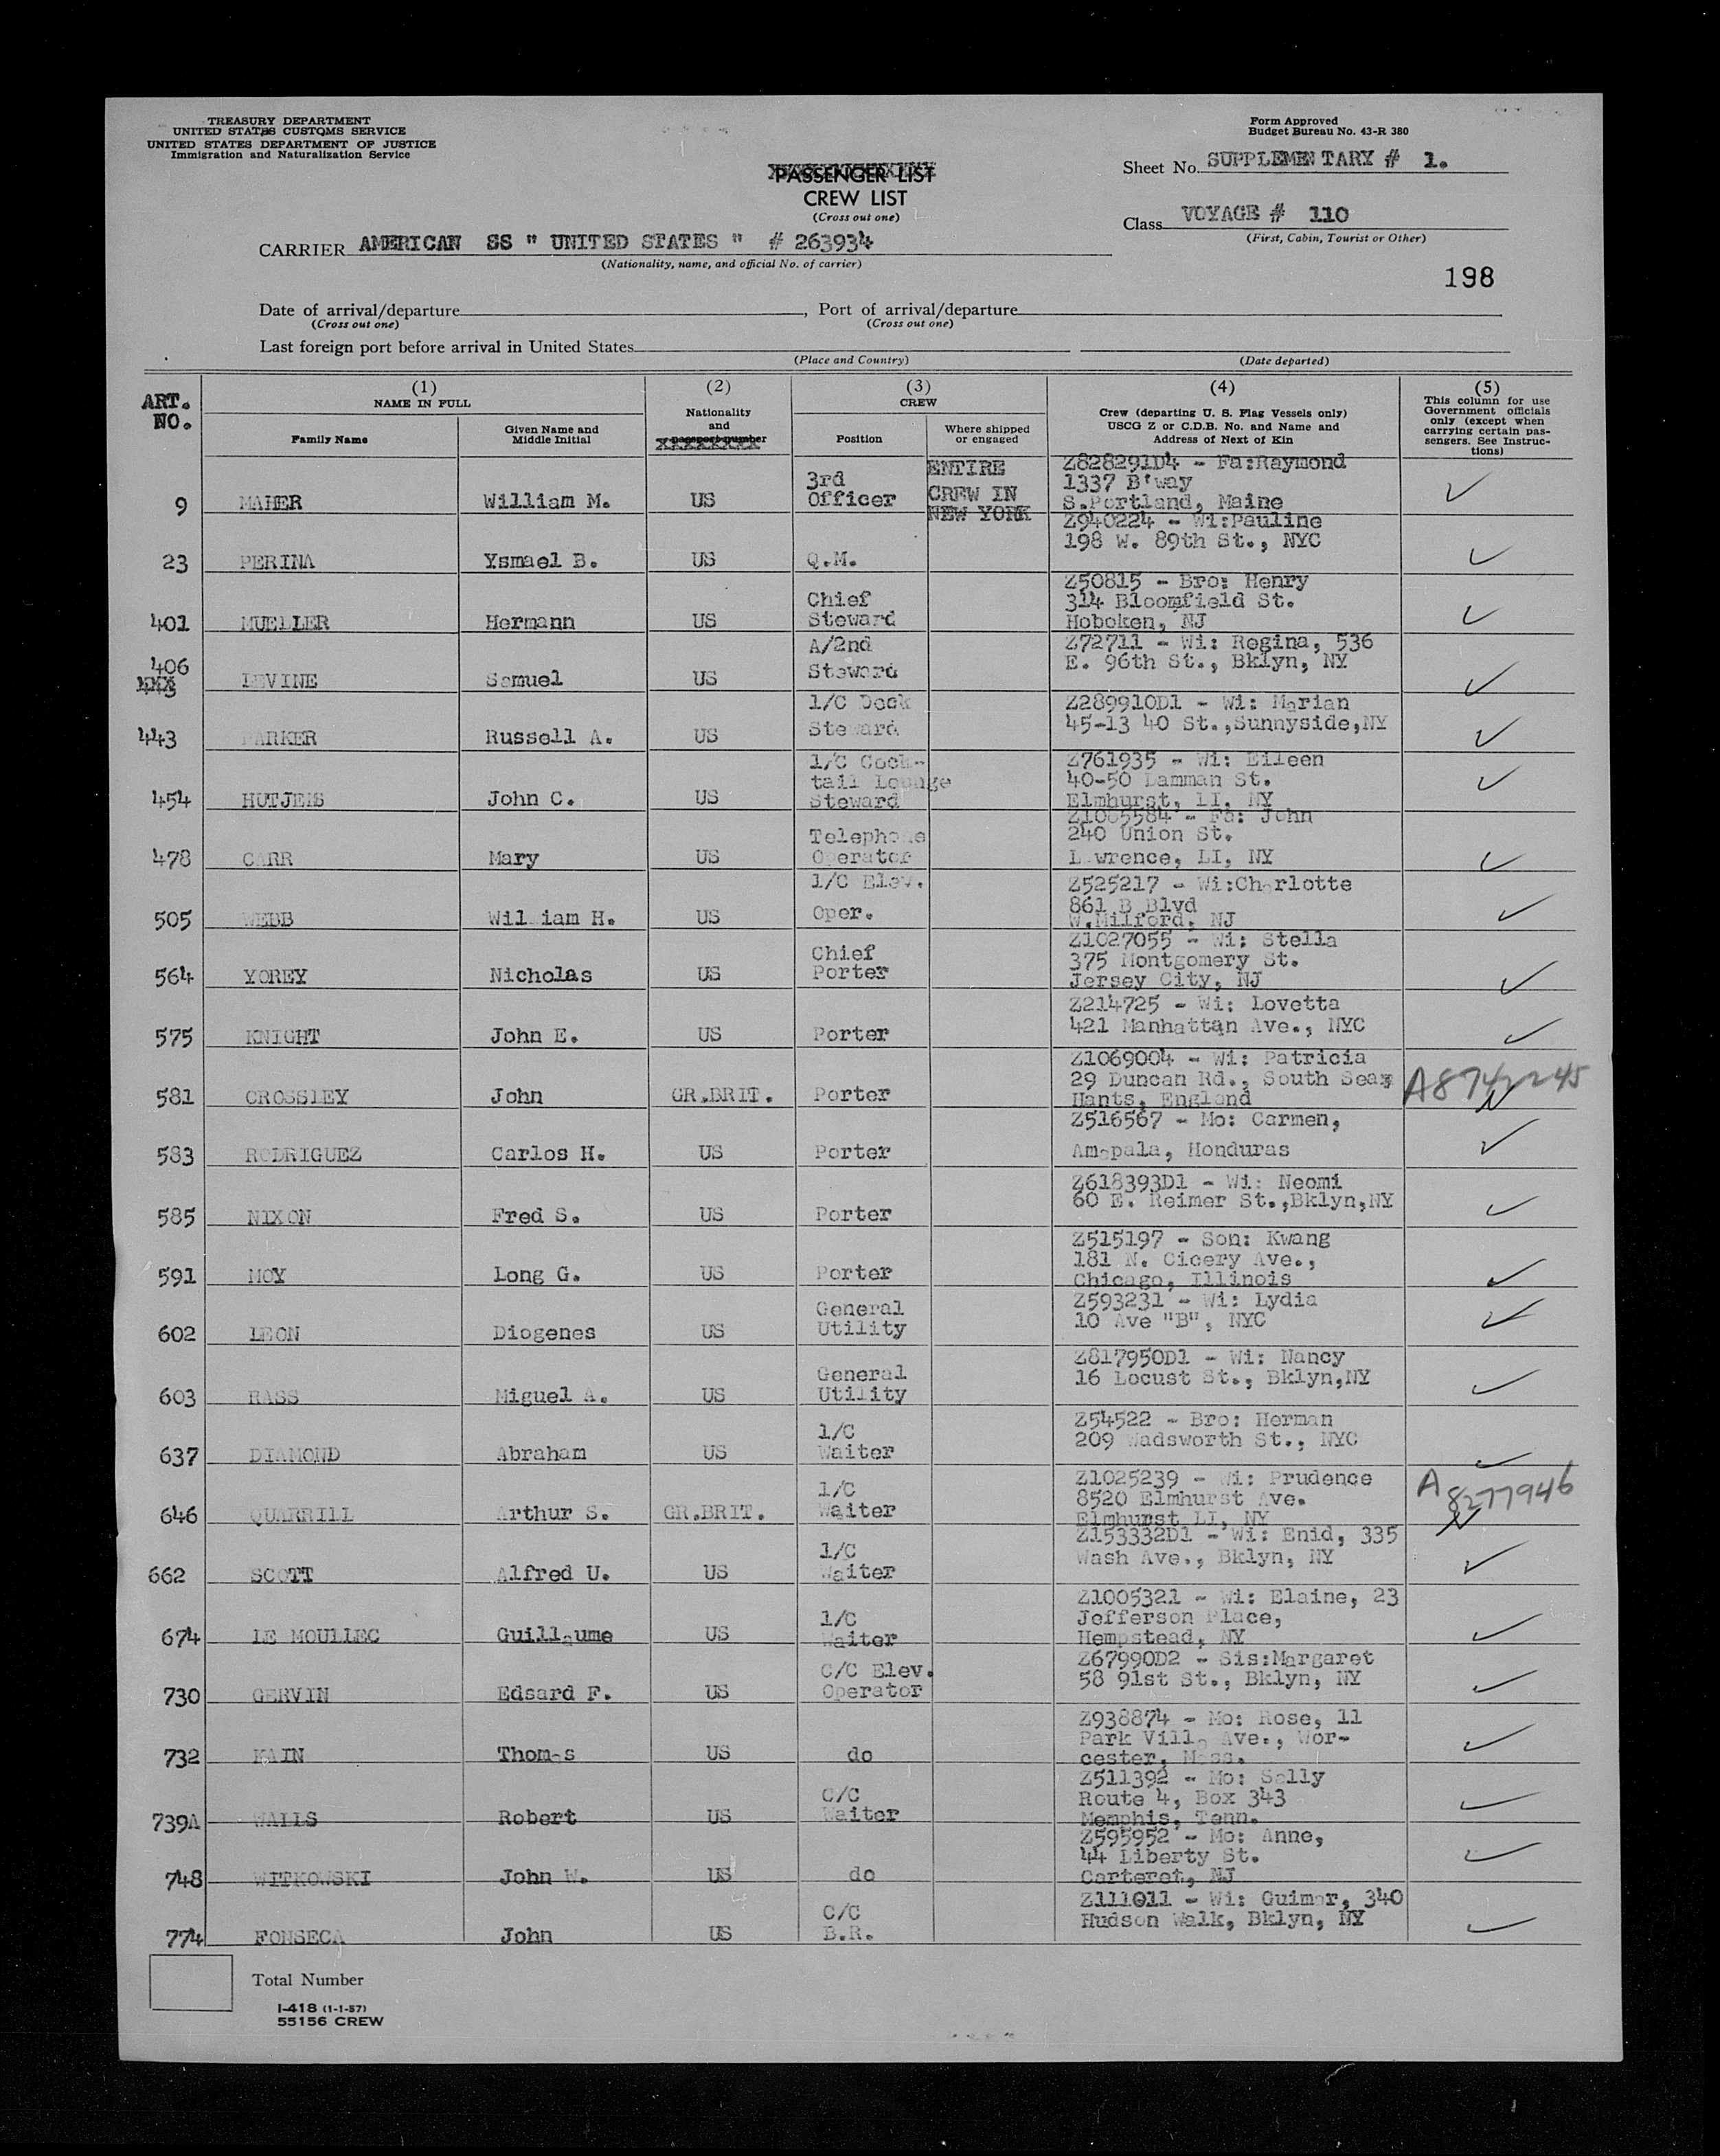 TREASURY DEPARTMENT
UNITED STATES CUSTOMS SERVICE
UNITED STATES DEPARTMENT OF JUSTICE
Immigration and Naturalization Service
Form Approved
Budget Bureau No. 43-R 380
PASSENGER LIST
CREW LIST
(Cross out one)
Sheet No. SUPPLEMENTARY # 1.
Class VOYAGE # 110
(First, Cabin, Tourist or Other)
CARRIER AMERICAN SS " UNITED STATES " # 263934
(Nationality, name, and official No. of carrier)
198
Date of arrival/departure , Port of arrival/departure
(Cross out one) (Cross out one)
Last foreign port before arrival in United States
(Place and Country) (Date departed)
ART. NO.
(1) NAME IN FULL
Family Name
Given Name and Middle Initial
(2) Nationality and passport number
(3) CREW
Position
Where shipped or engaged
(4) Crew (departing U. S. Flag Vessels only) USCG Z or C.D.B. No. and Name and Address of Next of Kin
(5) This column for use Government officials only (except when carrying certain passengers. See Instructions)
ENTIRE CREW IN NEW YORK
9 MAHER William M. US 3rd Officer Z828291D4 - Fa:Raymond 1337 B'way S.Portland, Maine
23 PERINA Ysmael B. US Q.M. Z940224 - Wi:Pauline 198 W. 89th St., NYC
401 MUELLER Hermann US Chief Steward Z50815 - Bro: Henry 314 Bloomfield St. Hoboken, NJ
406 LEVINE Samuel US A/2nd Steward Z72711 - Wi: Regina, 536 E. 96th St., Bklyn, NY
443 PARKER Russell A. US 1/C Deck Steward Z289910D1 - Wi: Marian 45-13 40 St.,Sunnyside,NY
454 HUTJENS John C. US 1/C Cock-tail Lounge Steward Z761935 - Wi: Eileen 40-50 Lamman St. Elmhurst, LI, NY
478 CARR Mary US Telephone Operator Z1065584 - Fa: John 240 Union St. Lawrence, LI, NY
505 WEBB William H. US 1/C Elev. Oper. Z525217 - Wi:Charlotte 861 B Blvd W.Milford, NJ
564 YOREY Nicholas US Chief Porter Z1027055 - Wi: Stella 375 Montgomery St. Jersey City, NJ
575 KNIGHT John E. US Porter Z214725 - Wi: Lovetta 421 Manhattan Ave., NYC
581 CROSSLEY John GR.BRIT. Porter Z1069004 - Wi: Patricia 29 Duncan Rd., South Seas Hants, England A8742245
583 RODRIGUEZ Carlos H. US Porter Z516567 - Mo: Carmen, Amapala, Honduras
585 NIXON Fred S. US Porter Z618393D1 - Wi: Neomi 60 E. Reimer St.,Bklyn,NY
591 MOY Long G. US Porter Z515197 - Son: Kwang 181 N. Cicery Ave., Chicago, Illinois
602 LEON Diogenes US General Utility Z593231 - Wi: Lydia 10 Ave "B", NYC
603 HASS Miguel A. US General Utility Z817950D1 - Wi: Nancy 16 Locust St., Bklyn,NY
637 DIAMOND Abraham US 1/C Waiter Z54522 - Bro: Herman 209 Wadsworth St., NYC
646 QUARRILL Arthur S. GR.BRIT. 1/C Waiter Z1025239 - Wi: Prudence 8520 Elmhurst Ave. Elmhurst LI, NY A 8277946
662 SCOTT Alfred U. US 1/C Waiter Z153332D1 - Wi: Enid, 335 Wash Ave., Bklyn, NY
674 LE MOULLEC Guillaume US 1/C Waiter Z1005321 - Wi: Elaine, 23 Jefferson Place, Hempstead, NY
730 GERVIN Edsard F. US C/C Elev. Operator Z67990D2 - Sis:Margaret 58 91st St., Bklyn, NY
732 KAIN Thomas US do Z938874 - Mo: Rose, 11 Park Villa Ave., Wor-cester, Mass.
739A WALLS Robert US C/C Waiter Z511392 - Mo: Sally Route 4, Box 343 Memphis, Tenn.
748 WITKOWSKI John W. US do Z595952 - Mo: Anne, 44 Liberty St. Carteret, NJ
774 FONSECA John US C/C B.R. Z111011 - Wi: Guimar, 340 Hudson Walk, Bklyn, NY
Total Number
I-418 (1-1-57)
55156 CREW